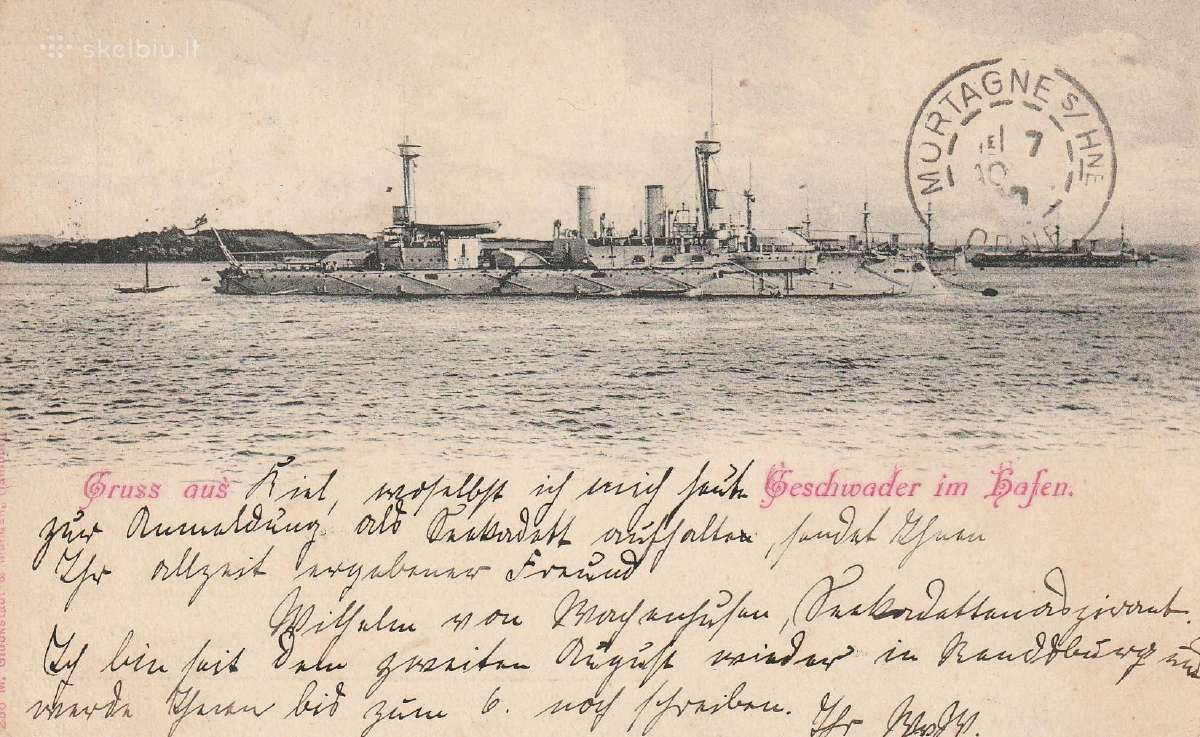 skelbiu.lt
MORTAGNE S/HNE
7
ORNE
Gruss aus Kiel, woselbst ich mich heute Geschwader im Hafen.
zur Anmeldung als Seekadett aufhalte, sendet Ihnen
Ihr allzeit ergebener Freund
Wilhelm von Wachenhusen, Seekadettenaspirant.
Ich bin seit dem zweiten August wieder in Rendsburg und
werde Ihnen bis zum 6. noch schreiben. Ihr WvW.
M. Glückstadt &